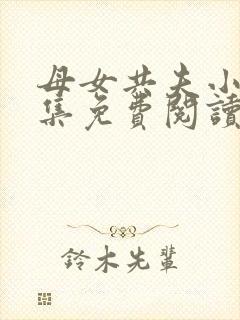 母女共夫小
集免費閱讀
鈴木先輩